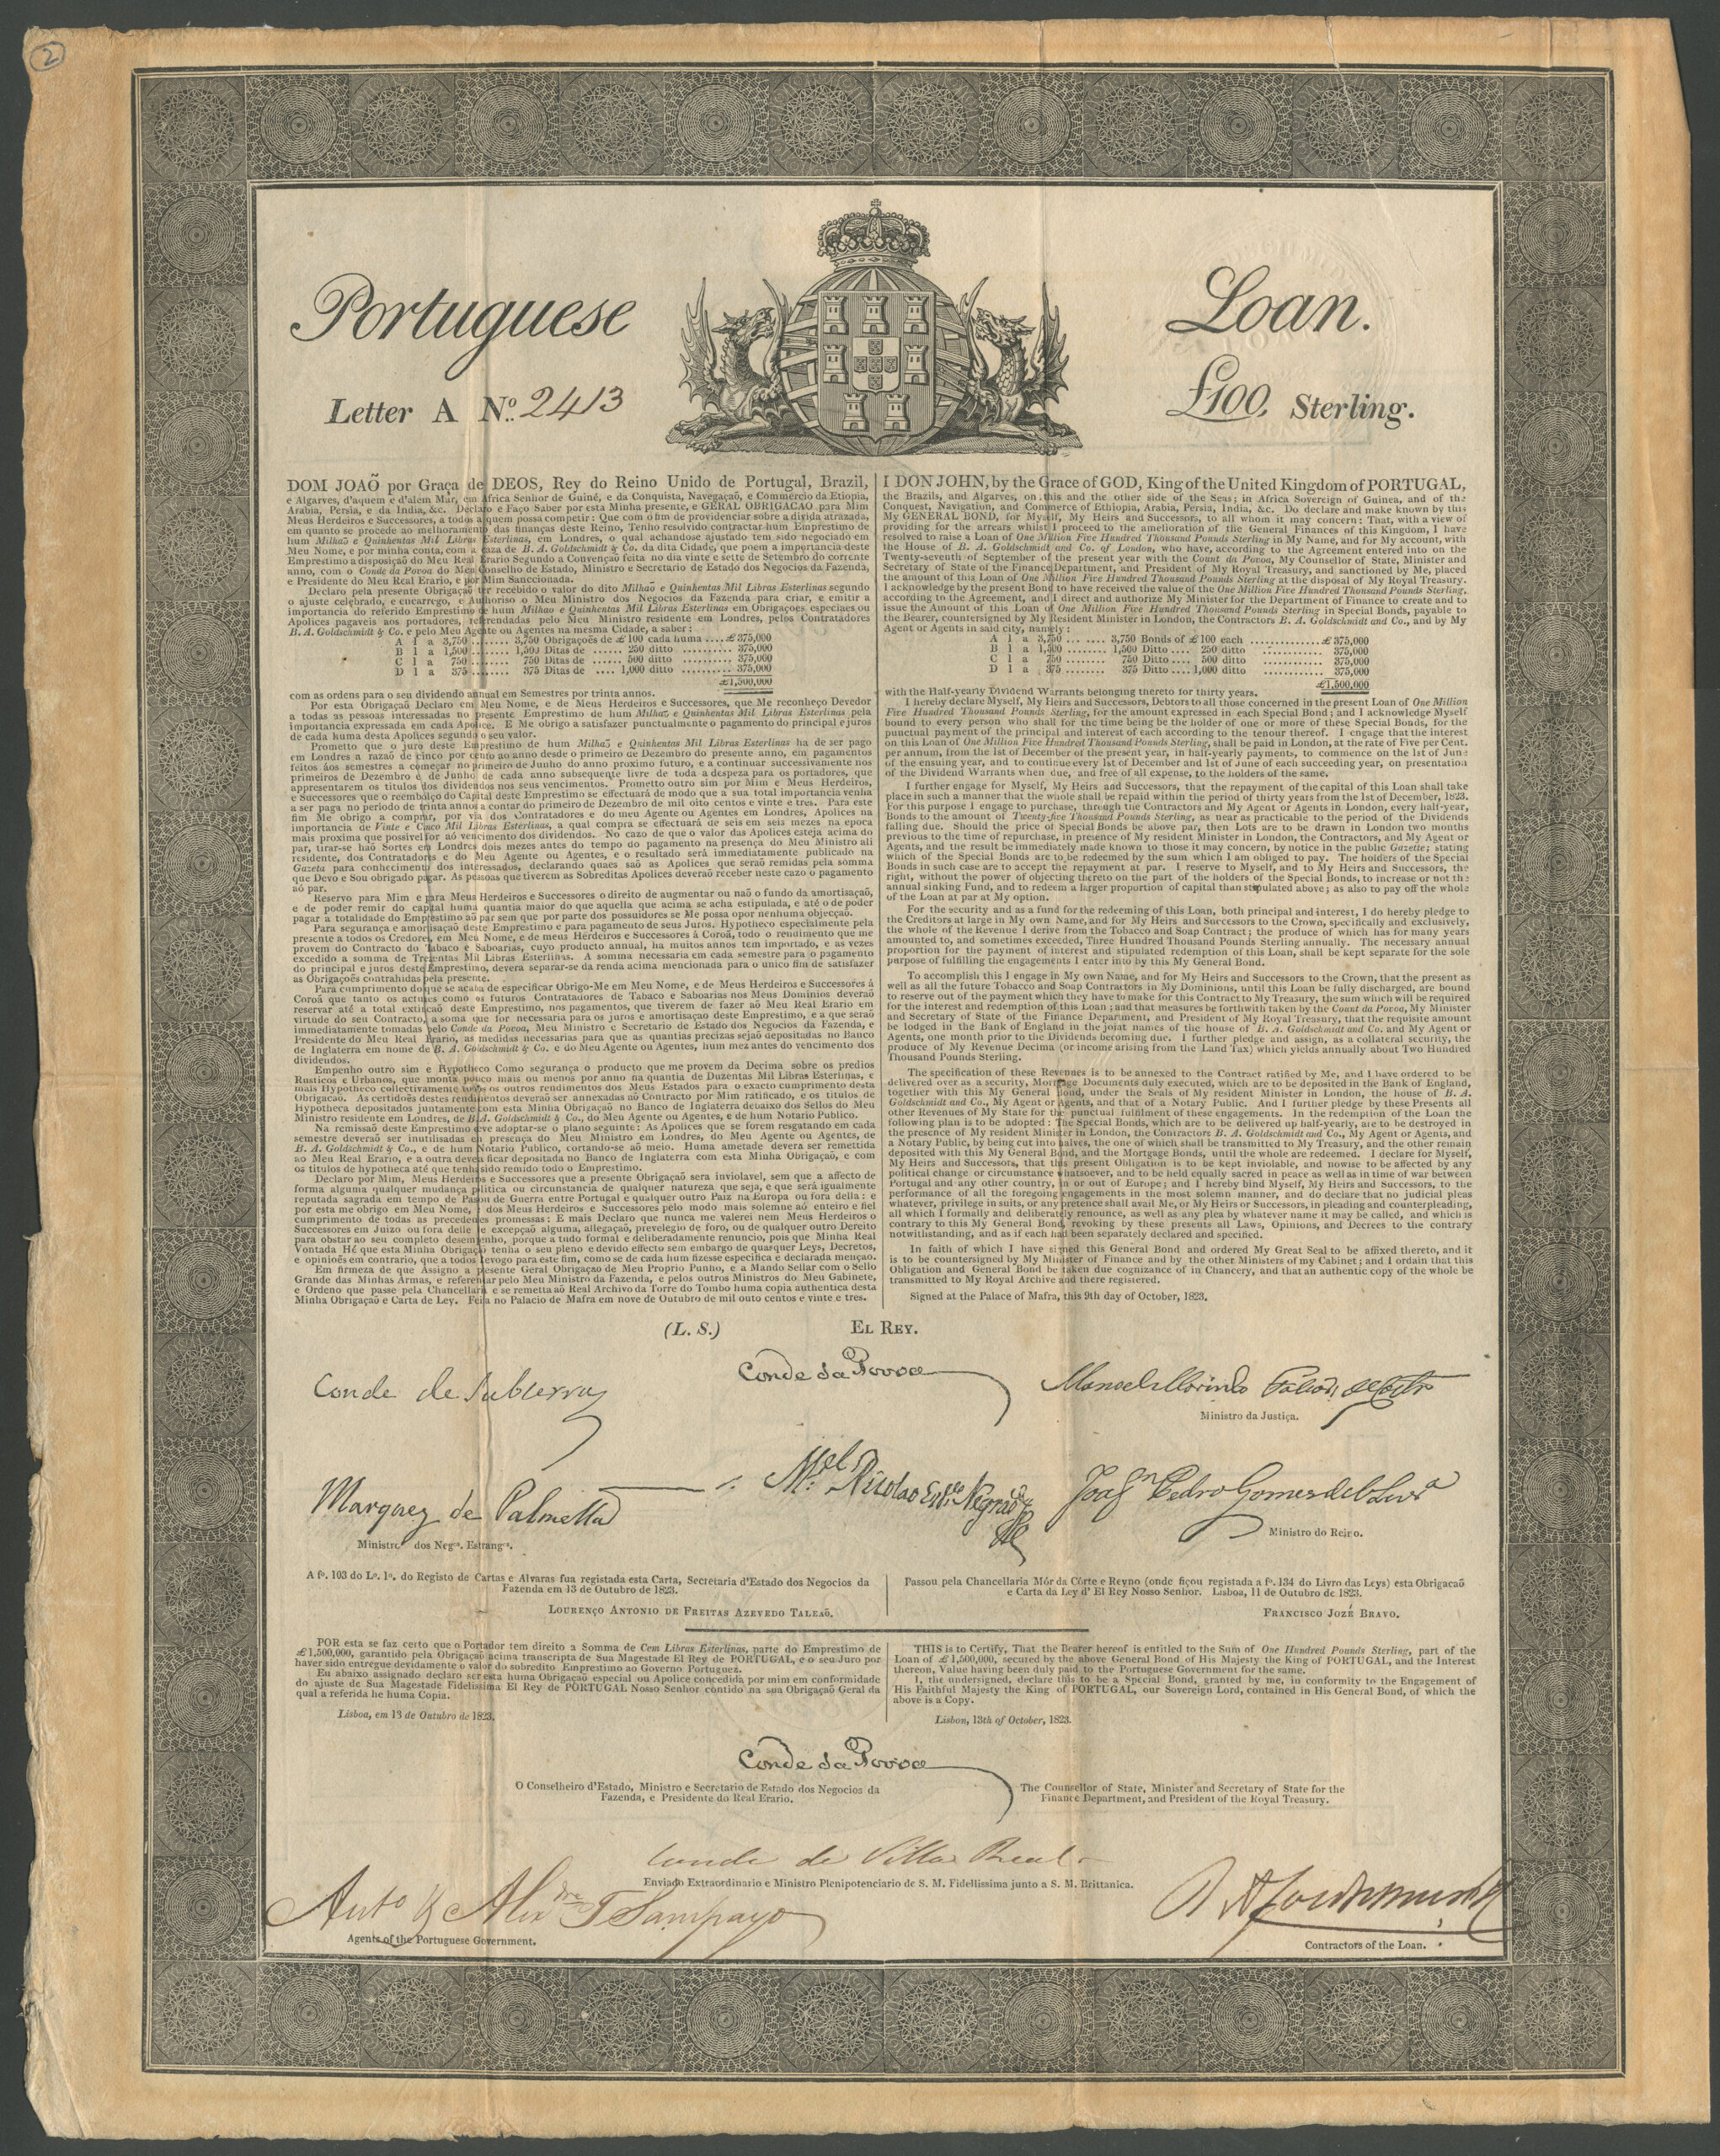 2
Portuguese
Loan.
Letter A Nº. 2413
£100, Sterling.
DOM JOAÕ por Graça de DEOS, Rey do Reino Unido de Portugal, Brazil,
e Algarves, d'aquem e d'alem Mar, em Africa Senhor de Guiné, e da Conquista, Navegaçaõ, e Commercio da Etiopia,
Arabia, Persia, e da India, &c. Declaro e Faço Saber por esta Minha presente, e GERAL OBRIGACAO para Mim
Meus Herdeiros e Successores, a todos a quem possa competir: Que com o fim de providenciar sobre a divida atrazada,
em quanto se procede ao melhoramento das finanças deste Reino, Tenho resolvido contractar hum Emprestimo de
hum Milhaõ e Quinhentas Mil Libras Esterlinas, em Londres, o qual achandose ajustado tem sido negociado em
Meu Nome, e por minha conta, com a caza de B. A. Goldschmidt & Co. da dita Cidade, que poem a importancia deste
Emprestimo a disposiçaõ do Meu Real Erario Segundo a Convençaõ feita no dia vinte e sette de Setembro do corrente
anno, com o Conde da Povoa do Meu Conselho de Estado, Ministro e Secretario de Estado dos Negocios da Fazenda,
e Presidente do Meu Real Erario, e por Mim Sanccionada.
Declaro pela presente Obrigaçaõ ter recebido o valor do dito Milhaõ e Quinhentas Mil Libras Esterlinas segundo
o ajuste celebrado, e encarrego, e Authoriso o Meu Ministro dos Negocios da Fazenda para criar, e emitir a
importancia do referido Emprestimo de hum Milhao e Quinhentas Mil Libras Esterlinas em Obrigaçoes especiaes ou
Apolices pagaveis aos portadores, referendadas pelo Meu Ministro residente em Londres, pelos Contratadores
B. A. Goldschmidt & Co. e pelo Meu Agente ou Agentes na mesma Cidade, a saber:
A 1 a 3,750 ........ 3,750 Obrigaçoës de £100 cada huma .... £375,000
B 1 a 1,500 ........ 1,500 Ditas de ...... 250 ditto .......... 375,000
C 1 a 750 ........ 750 Ditas de ...... 500 ditto .......... 375,000
D 1 a 375 ........ 375 Ditas de .... 1,000 ditto .......... 375,000
£1,500,000
com as ordens para o seu dividendo annual em Semestres por trinta annos.
Por esta Obrigaçaõ Declaro em Meu Nome, e de Meus Herdeiros e Successores, que Me reconheço Devedor
a todas as pessoas interessadas no presente Emprestimo de hum Milhaõ e Quinhentas Mil Libras Esterlinas pela
importancia expressada em cada Apolice. E Me obrigo a satisfazer punctualmente o pagamento do principal e juros
de cada huma desta Apolices segundo o seu valor.
Prometto que o juro deste Emprestimo de hum Milhaõ e Quinhentas Mil Libras Esterlinas ha de ser pago
em Londres a razaõ de cinco por cento ao anno desde o primeiro de Dezembro do presente anno, em pagamentos
feitos áos semestres a começar no primeiro de Junho do anno proximo futuro, e a continuar successivamente nos
primeiros de Dezembro e de Junho de cada anno subsequente livre de toda a despeza para os portadores, que
appresentarem os titulos dos dividendos nos seus vencimentos. Prometto outro sim por Mim e Meus Herdeiros,
e Successores que o reembolço do Capital deste Emprestimo se effectuará de modo que a sua total importancia venha
a ser paga no periodo de trinta annos a contar do primeiro de Dezembro de mil oito centos e vinte e tres. Para este
fim Me obrigo a comprar, por via dos Contratadores e do meu Agente ou Agentes em Londres, Apolices na
importancia de Vinte e Cinco Mil Libras Esterlinas, a qual compra se effectuará de seis em seis mezes na epoca
mais proxima que possivel for aõ vencimento dos dividendos. No cazo de que o valor das Apolices esteja acima do
par, tirar-se haõ Sortes em Londres dois mezes antes do tempo do pagamento na presença do Meu Ministro ali
residente, dos Contratadores e do Meu Agente ou Agentes, e o resultado será immediatamente publicado na
Gazeta para conhecimento dos interessados, declarando quaes saõ as Apolices que seraõ remidas pela somma
que Devo e Sou obrigado pagar. As pessoas que tiverem as Sobreditas Apolices deveraõ receber neste cazo o pagamento
aõ par.
Reservo para Mim e para Meus Herdeiros e Successores o direito de augmentar ou naõ o fundo da amortisaçaõ,
e de poder remir do capital huma quantia maior do que aquella que acima se acha estipulada, e até o de poder
pagar a totalidade do Emprestimo aõ par sem que por parte dos possuidores se Me possa opor nenhuma objecçaõ.
Para segurança e amortisaçaõ deste Emprestimo e para pagamento de seus Juros. Hypotheco especialmente pela
presente a todos os Credores, em Meu Nome, e de meus Herdeiros e Successores á Coroã, todo o rendimento que me
provem do Contracto do Tabaco e Saboarias, cuyo producto annual, ha muitos annos tem importado, e as vezes
excedido a somma de Trezentas Mil Libras Esterlinas. A somma necessaria em cada semestre para o pagamento
do principal e juros deste Emprestimo, devera separar-se da renda acima mencionada para o unico fim de satisfazer
as Obrigaçoẽs contrahidas pela presente.
Para cumprimento do que se acaba de especificar Obrigo-Me em Meu Nome, e de Meus Herdeiros e Successores á
Coroã que tanto os actuaes como os futuros Contratadores de Tabaco e Saboarias nos Meus Dominios deveraõ
reservar até a total extincaõ deste Emprestimo, nos pagamentos, que tiverem de fazer aõ Meu Real Erario em
virtude do seu Contracto, a soma que for necessaria para os juros e amortisaçao deste Emprestimo, e a que seraõ
immediatamente tomadas pelo Conde da Povoa, Meu Ministro e Secretario de Estado dos Negocios da Fazenda, e
Presidente do Meu Real Erario, as medidas necessarias para que as quantias precizas sejaõ depositadas no Banco
de Inglaterra em nome de B. A. Goldschmidt & Co. e do Meu Agente ou Agentes, hum mez antes do vencimento dos
dividendos.
Empenho outro sim e Hypotheco Como segurança o producto que me provem da Decima sobre os predios
Rusticos e Urbanos, que monta pouco mais ou menos por anno na quantia de Duzentas Mil Libras Esterlinas, e
mais Hypotheco collectivamente todos os outros rendimentos dos Meus Estados para o exacto cumprimento desta
Obrigacaõ. As certidoẽs destes rendimentos deveraõ ser annexadas aõ Contracto por Mim ratificado, e os titulos de
Hypotheca depositados juntamente com esta Minha Obrigaçaõ no Banco de Inglaterra debaixo dos Sellos do Meu
Ministro residente em Londres, de B. A. Goldschmidt & Co., do Meu Agente ou Agentes, e de hum Notario Publico.
Na remissaõ deste Emprestimo deve adoptar-se o plano seguinte: As Apolices que se forem resgatando em cada
semestre deveraõ ser inutilisadas em presença do Meu Ministro em Londres, do Meu Agente ou Agentes, de
B. A. Goldschmidt & Co., e de hum Notario Publico, cortando-se aõ meio. Huma ametade devera ser remettida
ao Meu Real Erario, e a outra devera ficar depositada no Banco de Inglaterra com esta Minha Obrigaçaõ, e com
os titulos de hypotheca até que tenha sido remido todo o Emprestimo.
Declaro por Mim, Meus Herdeiros e Successores que a presente Obrigaçaõ sera inviolavel, sem que a affecto de
forma alguma qualquer mudança politica ou circunstancia de qualquer natureza que seja, e que será igualmente
reputada sagrada em tempo de Paz ou de Guerra entre Portugal e qualquer outro Paiz na Europa ou fora della: e
por esta me obrigo em Meu Nome, e dos Meus Herdeiros e Successores pelo modo mais solemne aõ enteiro e fiel
cumprimento de todas as precedentes promessas: E mais Declaro que nunca me valerei nem Meus Herdeiros o
Successores em Juizo on fora delle de excepçaõ alguma, allegaçaõ, prevelegio de foro, ou de qualquer outro Dereito
para obstar ao seu completo desempenho, porque a tudo formal e deliberadamente renuncio, pois que Minha Real
Vontada Hé que esta Minha Obrigaçaõ tenha o seu pleno e devido effecto sem embargo de quasquer Leys, Decretos,
e opinioẽs em contrario, que a todos revogo para este fim, como se de cada hum fizesse especifica e declarada mençaõ.
Em firmeza de que Assigno a presente Geral Obrigaçaõ de Meu Proprio Punho, e a Mando Sellar com o Sello
Grande das Minhas Armas, e referentar pelo Meu Ministro da Fazenda, e pelos outros Ministros do Meu Gabinete,
e Ordeno que passe pela Chancellaria e se remetta aõ Real Archivo da Torre do Tombo huma copia authentica desta
Minha Obrigaçaõ e Carta de Ley. Feita no Palacio de Mafra em nove de Outubro de mil outo centos e vinte e tres.
I DON JOHN, by the Grace of GOD, King of the United Kingdom of PORTUGAL,
the Brazils, and Algarves, on this and the other side of the Seas; in Africa Sovereign of Guinea, and of the
Conquest, Navigation, and Commerce of Ethiopia, Arabia, Persia, India, &c. Do declare and make known by this
My GENERAL BOND, for Myself, My Heirs and Successors, to all whom it may concern: That, with a view of
providing for the arrears whilst I proceed to the amelioration of the General Finances of this Kingdom, I have
resolved to raise a Loan of One Million Five Hundred Thousand Pounds Sterling in My Name, and for My account, with
the House of B. A. Goldschmidt and Co. of London, who have, according to the Agreement entered into on the
Twenty-seventh of September of the present year with the Count da Povoa, My Counsellor of State, Minister and
Secretary of State of the Finance Department, and President of My Royal Treasury, and sanctioned by Me, placed
the amount of this Loan of One Million Five Hundred Thousand Pounds Sterling at the disposal of My Royal Treasury.
I acknowledge by the present Bond to have received the value of the One Million Five Hundred Thousand Pounds Sterling,
according to the Agreement, and I direct and authorize My Minister for the Department of Finance to create and to
issue the Amount of this Loan of One Million Five Hundred Thousand Pounds Sterling in Special Bonds, payable to
the Bearer, countersigned by My Resident Minister in London, the Contractors B. A. Goldschmidt and Co., and by My
Agent or Agents in said city, namely:
A 1 a 3,750 ... .... 3,750 Bonds of £100 each .............. £375,000
B 1 a 1,500 ........ 1,500 Ditto .... 250 ditto ............ 375,000
C 1 a 750 ........ 750 Ditto .... 500 ditto ............ 375,000
D 1 a 375 ........ 375 Ditto .... 1,000 ditto ............ 375,000
£1,500,000
with the Half-yearly Dividend Warrants belonging thereto for thirty years.
I hereby declare Myself, My Heirs and Successors, Debtors to all those concerned in the present Loan of One Million
Five Hundred Thousand Pounds Sterling, for the amount expressed in each Special Bond; and I acknowledge Myself
bound to every person who shall for the time being be the holder of one or more of these Special Bonds, for the
punctual payment of the principal and interest of each according to the tenour thereof. I engage that the interest
on this Loan of One Million Five Hundred Thousand Pounds Sterling, shall be paid in London, at the rate of Five per Cent.
per annum, from the 1st of December of the present year, in half-yearly payments, to commence on the 1st of June
of the ensuing year, and to continue every 1st of December and 1st of June of each succeeding year, on presentation
of the Dividend Warrants when due, and free of all expense, to the holders of the same.
I further engage for Myself, My Heirs and Successors, that the repayment of the capital of this Loan shall take
place in such a manner that the whole shall be repaid within the period of thirty years from the 1st of December, 1823.
For this purpose I engage to purchase, through the Contractors and My Agent or Agents in London, every half-year,
Bonds to the amount of Twenty-five Thousand Pounds Sterling, as near as practicable to the period of the Dividends
falling due. Should the price of Special Bonds be above par, then Lots are to be drawn in London two months
previous to the time of repurchase, in presence of My resident Minister in London, the Contractors, and My Agent or
Agents, and the result be immediately made known to those it may concern, by notice in the public Gazette; stating
which of the Special Bonds are to be redeemed by the sum which I am obliged to pay. The holders of the Special
Bonds in such case are to accept the repayment at par. I reserve to Myself, and to My Heirs and Successors, the
right, without the power of objecting thereto on the part of the holders of the Special Bonds, to increase or not the
annual sinking Fund, and to redeem a larger proportion of capital than stipulated above; as also to pay off the whole
of the Loan at par at My option.
For the security and as a fund for the redeeming of this Loan, both principal and interest, I do hereby pledge to
the Creditors at large in My own Name, and for My Heirs and Successors to the Crown, specifically and exclusively,
the whole of the Revenue I derive from the Tobacco and Soap Contract; the produce of which has for many years
amounted to, and sometimes exceeded, Three Hundred Thousand Pounds Sterling annually. The necessary annual
proportion for the payment of interest and stipulated redemption of this Loan, shall be kept separate for the sole
purpose of fulfilling the engagements I enter into by this My General Bond.
To accomplish this I engage in My own Name, and for My Heirs and Successors to the Crown, that the present as
well as all the future Tobacco and Soap Contractors in My Dominions, until this Loan be fully discharged, are bound
to reserve out of the payment which they have to make for this Contract to My Treasury, the sum which will be required
for the interest and redemption of this Loan; and that measures be forthwith taken by the Count da Povoa, My Minister
and Secretary of State of the Finance Department, and President of My Royal Treasury, that the requisite amount
be lodged in the Bank of England in the joint names of the house of B. A. Goldschmidt and Co. and My Agent or
Agents, one month prior to the Dividends becoming due. I further pledge and assign, as a collateral security, the
produce of My Revenue Decima (or income arising from the Land Tax) which yields annually about Two Hundred
Thousand Pounds Sterling.
The specification of these Revenues is to be annexed to the Contract ratified by Me, and I have ordered to be
delivered over as a security, Mortgage Documents duly executed, which are to be deposited in the Bank of England,
together with this My General Bond, under the Seals of My resident Minister in London, the house of B. A.
Goldschmidt and Co., My Agent or Agents, and that of a Notary Public. And I further pledge by these Presents all
other Revenues of My State for the punctual fulfilment of these engagements. In the redemption of the Loan the
following plan is to be adopted: The Special Bonds, which are to be delivered up half-yearly, are to be destroyed in
the presence of My resident Minister in London, the Contractors B. A. Goldschmidt and Co., My Agent or Agents, and
a Notary Public, by being cut into halves, the one of which shall be transmitted to My Treasury, and the other remain
deposited with this My General Bond, and the Mortgage Bonds, until the whole are redeemed. I declare for Myself,
My Heirs and Successors, that this present Obligation is to be kept inviolable, and nowise to be affected by any
political change or circumstance whatsoever, and to be held equally sacred in peace as well as in time of war between
Portugal and any other country, in or out of Europe; and I hereby bind Myself, My Heirs and Successors, to the
performance of all the foregoing engagements in the most solemn manner, and do declare that no judicial pleas
whatever, privilege in suits, or any pretence shall avail Me, or My Heirs or Successors, in pleading and counterpleading,
all which I formally and deliberately renounce, as well as any plea by whatever name it may be called, and which is
contrary to this My General Bond, revoking by these presents all Laws, Opinions, and Decrees to the contrary
notwithstanding, and as if each had been separately declared and specified.
In faith of which I have signed this General Bond and ordered My Great Seal to be affixed thereto, and it
is to be countersigned by My Minister of Finance and by the other Ministers of my Cabinet; and I ordain that this
Obligation and General Bond be taken due cognizance of in Chancery, and that an authentic copy of the whole be
transmitted to My Royal Archive and there registered.
Signed at the Palace of Mafra, this 9th day of October, 1823.
(L. S.) EL REY.
Conde de Subserra
Conde da Povoa
Manoel Marinho Falcaõ de Castro
Ministro da Justiça.
Marquez de Palmella
Mel. Nicolao Esteves Negraõ
Joaqn Pedro Gomes de Olivra
Ministro dos Negos. Estrangos.
Ministro do Reino.
A fº. 103 do Lº. 1º. do Registo de Cartas e Alvaras fua registada esta Carta, Secretaria d'Estado dos Negocios da
Fazenda em 13 de Outubro de 1823.
LOURENÇO ANTONIO DE FREITAS AZEVEDO TALEAÕ.
Passou pela Chancellaria Mór da Côrte e Reyno (onde fiçou registada a fº. 134 do Livro das Leys) esta Obrigacaõ
e Carta da Ley d' El Rey Nosso Senhor. Lisboa, 11 de Outubro de 1823.
FRANCISCO JOZÉ BRAVO.
POR esta se faz certo que o Portador tem direito a Somma de Cem Libras Esterlinas, parte do Emprestimo de
£1,500,000, garantido pela Obrigaçaõ acima transcripta de Sua Magestade El Rey de PORTUGAL, e o seu Juro por
haver sido entregue devidamente o valor do sobredito Emprestimo ao Governo Portuguez.
Eu abaixo assignado declaro ser esta huma Obrigaçaõ especial ou Apolice concedida por mim em conformidade
do ajuste de Sua Magestade Fidelissima El Rey de PORTUGAL Nosso Senhor contido na sua Obrigaçaõ Geral da
qual a referida he huma Copia.
Lisboa, em 13 de Outubro de 1823.
THIS is to Certify, That the Bearer hereof is entitled to the Sum of One Hundred Pounds Sterling, part of the
Loan of £1,500,000, secured by the above General Bond of His Majesty the King of PORTUGAL, and the Interest
thereon, Value having been duly paid to the Portuguese Government for the same.
I, the undersigned, declare this to be a Special Bond, granted by me, in conformity to the Engagement of
His Faithful Majesty the King of PORTUGAL, our Sovereign Lord, contained in His General Bond, of which the
above is a Copy.
Lisbon, 13th of October, 1823.
Conde da Povoa
O Conselheiro d'Estado, Ministro e Secretario de Estado dos Negocios da
Fazenda, e Presidente do Real Erario.
The Counsellor of State, Minister and Secretary of State for the
Finance Department, and President of the Royal Treasury.
Conde de Villa Real
Enviado Extraordinario e Ministro Plenipotenciario de S. M. Fidelissima junto a S. M. Brittanica.
Anto & Alexdre T Sampayo
B A Goldschmidt
Agents of the Portuguese Government.
Contractors of the Loan.